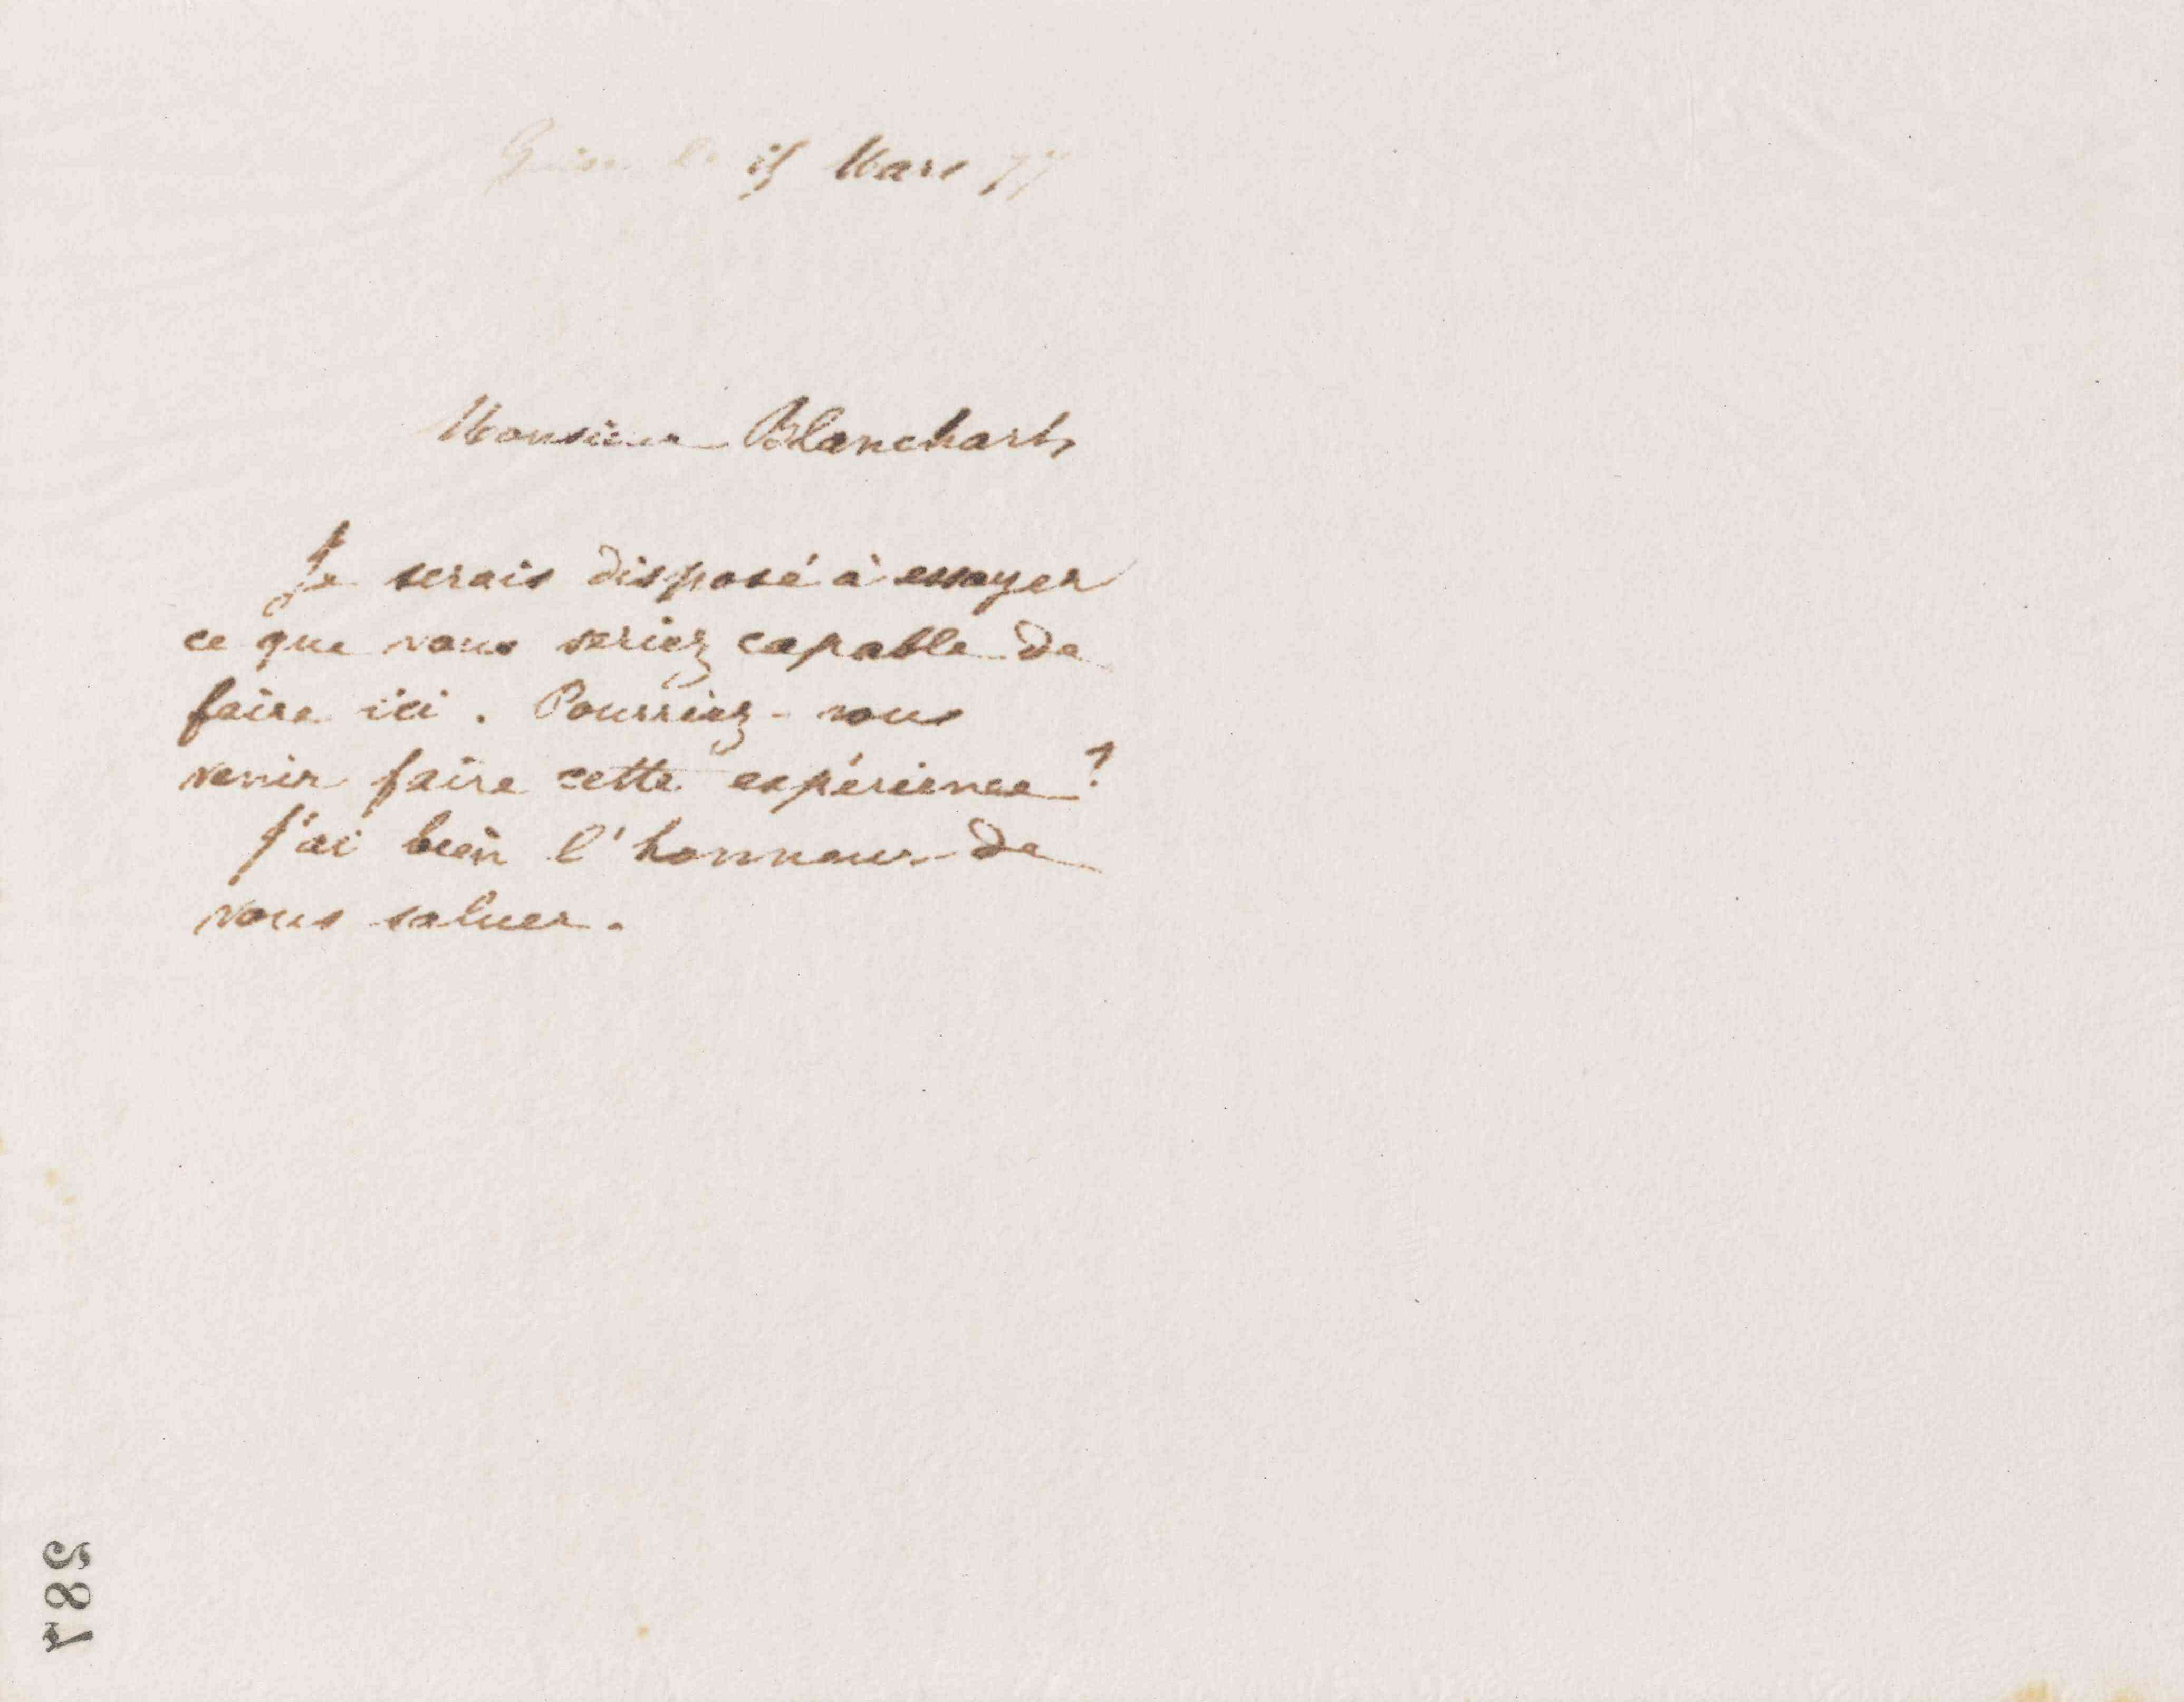 Guise le 15 Mars 77
Monsieur Blanchart,
Je serais disposé à essayer
ce que vous seriez capable de
faire ici. Pourriez-vous
venir faire cette expérience?
J'ai bien l'honneur de
vous saluer.
287